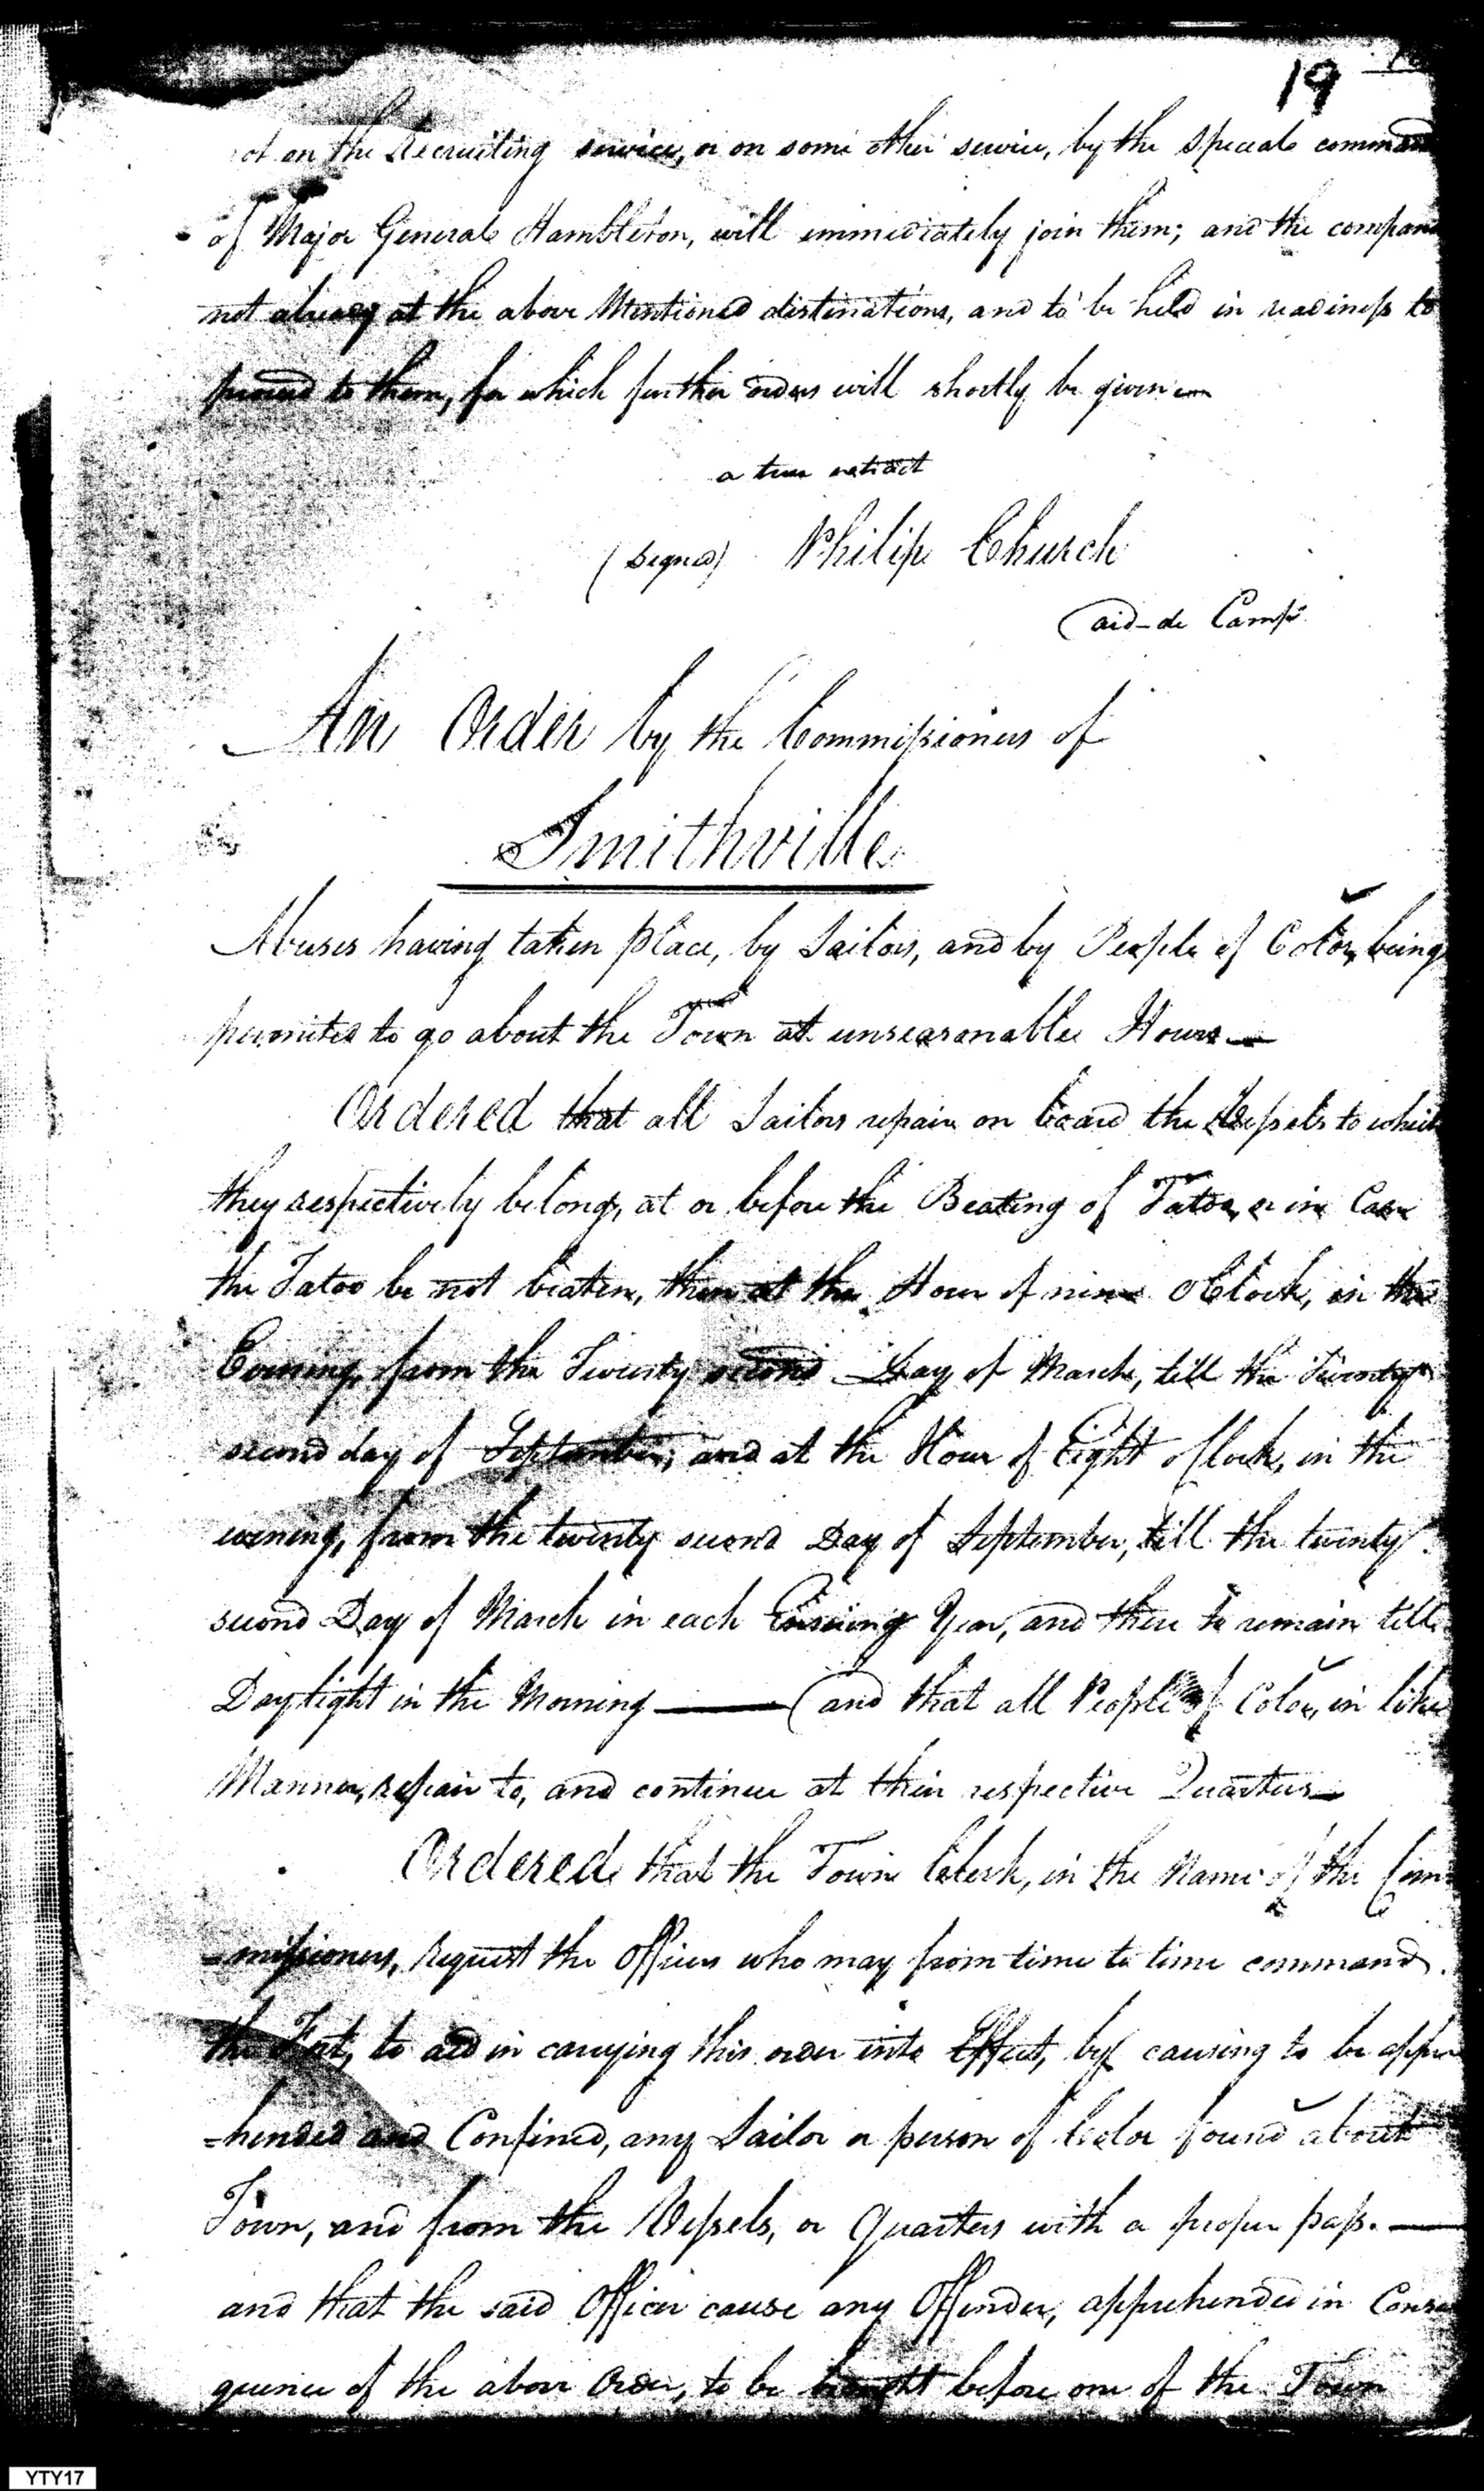 19
not on the Recruiting service, or on some other service, by the Special command
of Major General Hambleton, will immediately join them; and the compani
not already at the above Mentioned distinations, and to be held in readiness to
proceed to them, for which further orders will shortly be given
a true extract
(Signed) Philip Church
aid-de Camp
An Order by the Commissioners of
Smithville
Abuses having taken place, by Sailors, and by People of Color, being
permited to go about the Town at unseasonable Hours —
Ordered that all Sailors repair on board the Vessels to which
they respectively belong, at or before the Beating of Tatoo, or in Case
the Tatoo be not beaten, then at the Hour of nine oClock, in the
Evening, from the Twenty second Day of March, till the Twenty
second day of September, and at the Hour of Eight oClock, in the
evening, from the twenty second Day of September, till the twenty
second Day of March in each Ensuing Year, and there to remain till
Daylight in the Morning — (and that all People of Color, in like
Manner, repair to, and continue at their respective Quarters —
Ordered that the Town Clerk, in the Name of the Com-
-missioners, request the Officers who may from time to time command
the Fort, to aid in carrying this order into Effect, by causing to be appre
=hended and Confined, any Sailor or person of Color found about
Town, and from the Vessels, or Quarters with a proper pass. —
and that the said Officer cause any Offender, apprehended in Conse
quence of the above Order, to be brought before one of the Town
YTY17